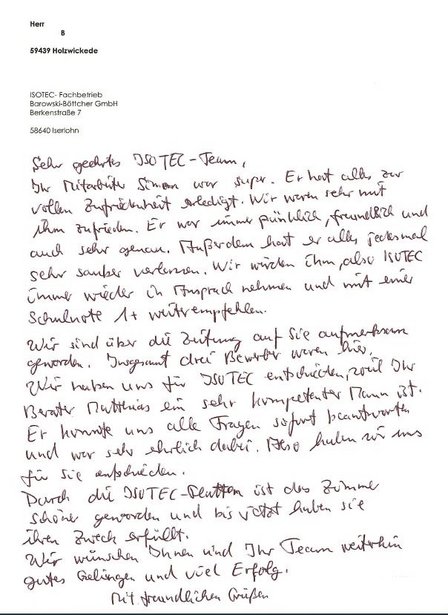 Herr
8
59439 Holzwickede
ISOTEC- Fachbetrieb
Barowski-Böttcher GmbH
Berkenstraße 7
58640 Iserlohn
Sehr geehrtes ISOTEC-Team,
Ihr Mitarbeiter Simon war super. Er hat alles zur
vollen Zufriedenheit erledigt. Wir waren sehr mit
ihm zufrieden. Er war immer pünktlich, freundlich und
auch sehr genau. Außerdem hat er alles jedesmal
sehr sauber verlassen. Wir würden ihn, also ISOTEC
immer wieder in Anspruch nehmen und mit einer
Schulnote 1+ weiterempfehlen.
Wir sind über die Zeitung auf Sie aufmerksam
geworden. Insgesamt drei Bewerber waren hier.
Wir haben uns für ISOTEC entschieden, weil Ihr
Berater Matthias ein sehr kompetenter Mann ist.
Er konnte uns alle Fragen sofort beantworten
und war sehr ehrlich dabei. Also haben wir uns
für Sie entschieden.
Durch die ISOTEC-Platten ist das Zimmer
schöner geworden und bis jetzt haben sie
ihren Zweck erfüllt.
Wir wünschen Ihnen und Ihr Team weiterhin
gutes Gelingen und viel Erfolg.
Mit freundlichen Grüßen